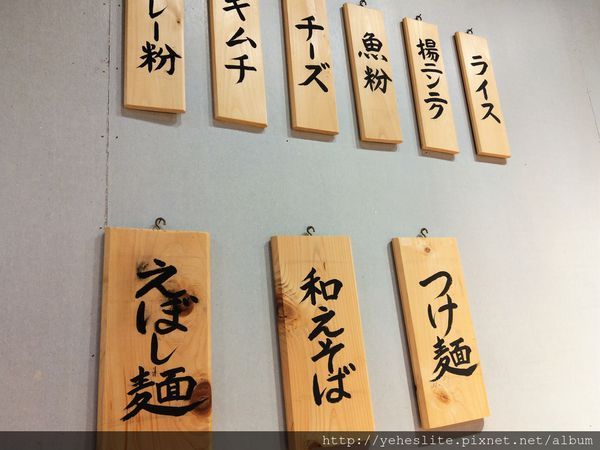 レー粉
キムチ
チーズ
魚粉
揚ニンニク
ライス
えぼし麺
和えそば
つけ麺
http://yeheslite.pixnet.net/album